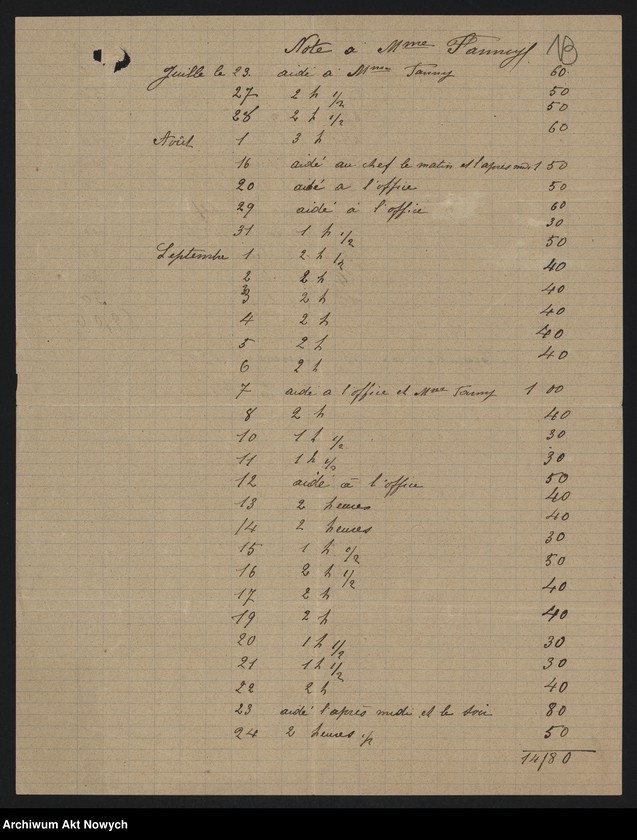 Note a Mme Fanny. NB
Juille le 23. aidé à Mme Fanny 60
27 2 h 1/2 50
28 2 h 1/2 50
Août 1 3 h 60
16 aidé au chef le matin et l'apres midi 1 50
20 aidé a l'office 50
29 aidé à l'office 60
31 1 h 1/2 30
Septembre 1 2 h 1/2 50
2 2 h 40
3 2 h 40
4 2 h 40
5 2 h 40
6 2 h 40
7 aidé a l'office et Mme Fanny 1 00
8 2 h 40
10 1 h 1/2 30
11 1 h 1/2 30
12 aidé à l'office 50
13 2 heures 40
14 2 heures 40
15 1 h 1/2 30
16 2 h 1/2 50
17 2 h 40
19 2 h 40
20 1 h 1/2 30
21 1 h 1/2 30
22 2 h 40
23 aidé l'après midi et le soir 80
24 2 heures 1/2 50
14/80
Archiwum Akt Nowych